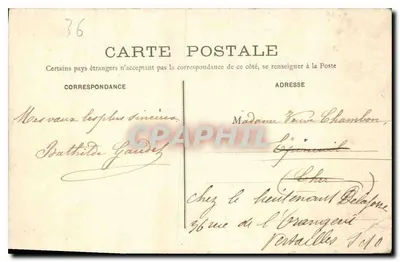 36
CARTE POSTALE
Certains pays étrangers n'acceptant pas la correspondance de ce côté, se renseigner à la Poste
CORRESPONDANCE
ADRESSE
Mes vœux les plus sincères
Bathilde Gaudet
Madame Veuve Chambon,
Cher
chez le lieutenant Delaporte
36 rue de l'Orangerie
Versailles S et O
CPAPHIL